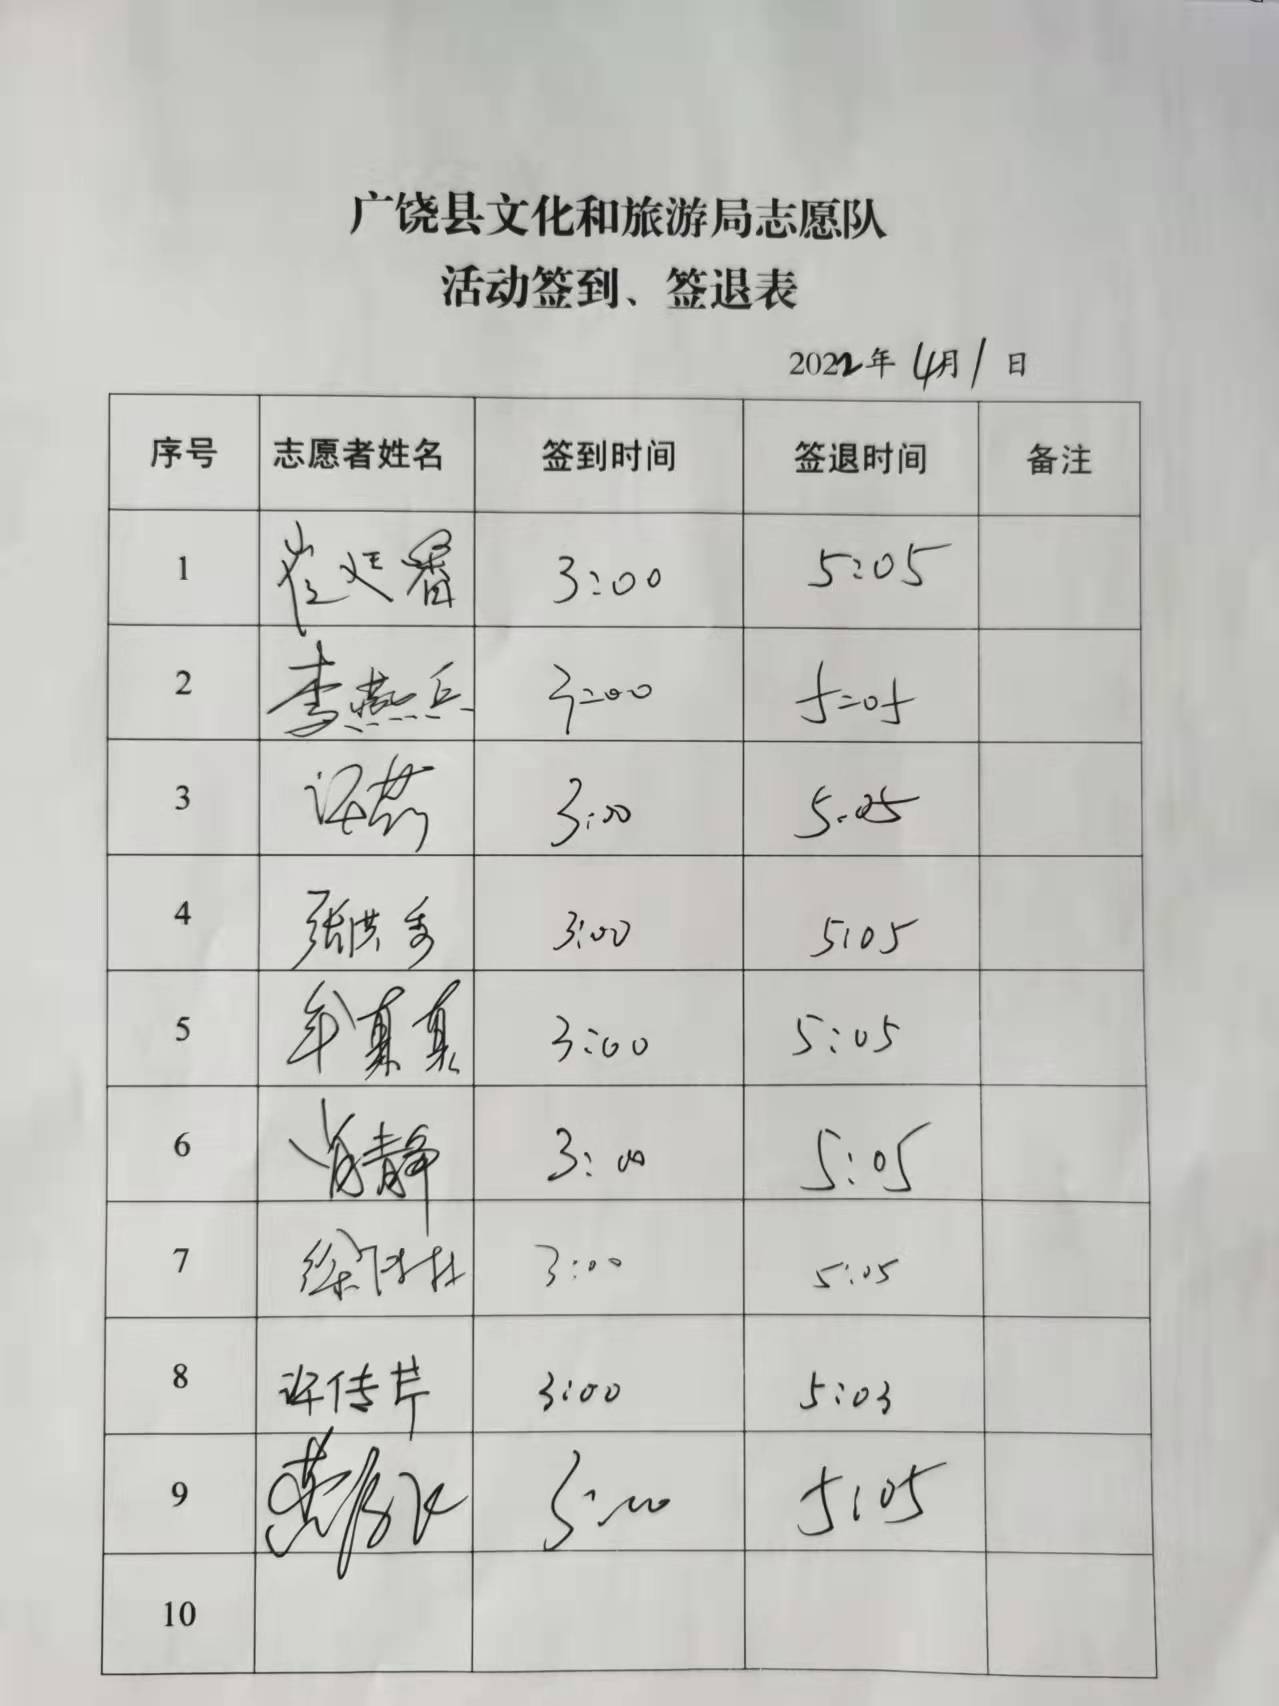 广饶县文化和旅游局志愿队
活动签到、签退表
2022年4月1日
序号 志愿者姓名 签到时间 签退时间 备注
1 崔 3:00 5:05
2 李燕兵 3:00 5:05
3 3:00 5:05
4 张洪秀 3:00 5:05
5 牟真真 3:00 5:05
6 肖静 3:00 5:05
7 徐 3:00 5:05
8 许传芹 3:00 5:03
9 3:00 5:05
10